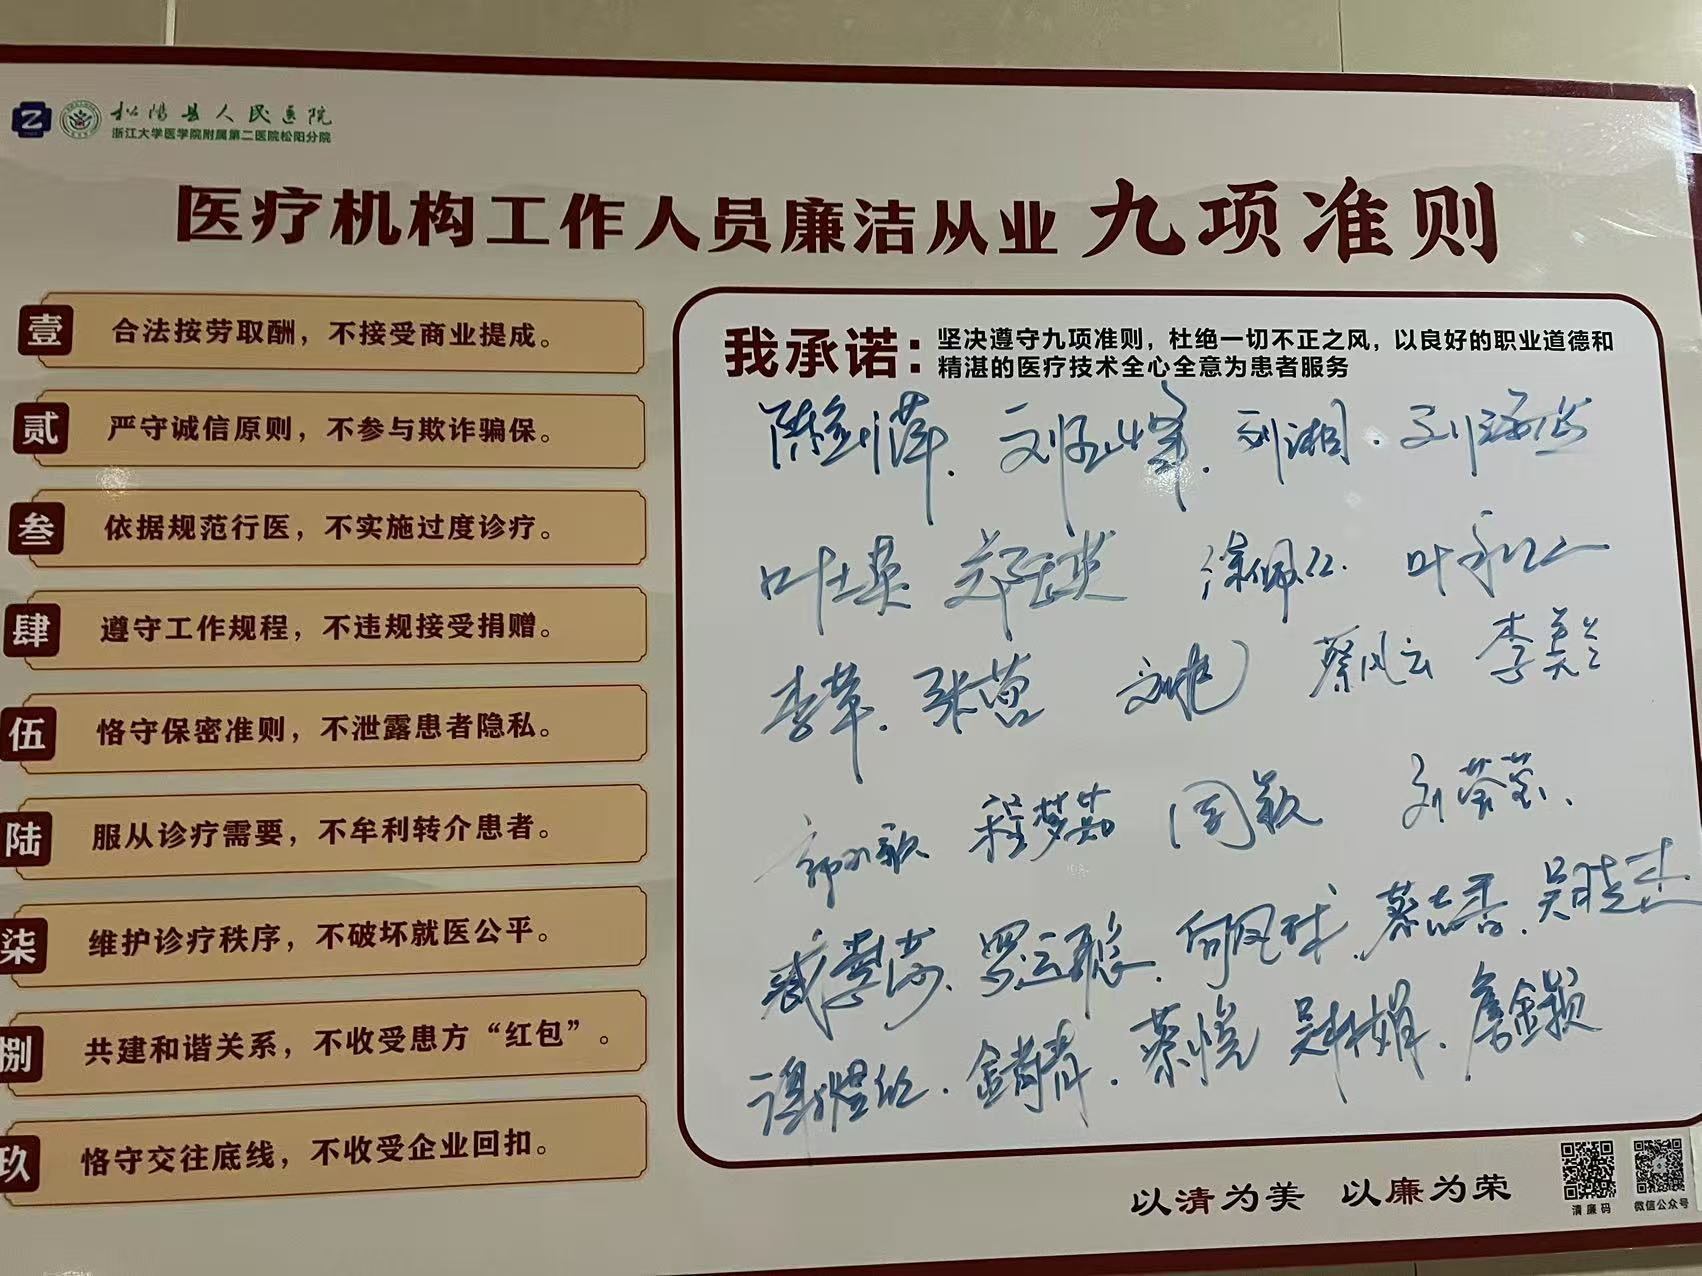 松阳县人民医院
浙江大学医学院附属第二医院松阳分院
医疗机构工作人员廉洁从业九项准则
壹 合法按劳取酬，不接受商业提成。
贰 严守诚信原则，不参与欺诈骗保。
叁 依据规范行医，不实施过度诊疗。
肆 遵守工作规程，不违规接受捐赠。
伍 恪守保密准则，不泄露患者隐私。
陆 服从诊疗需要，不牟利转介患者。
柒 维护诊疗秩序，不破坏就医公平。
捌 共建和谐关系，不收受患方“红包”。
玖 恪守交往底线，不收受企业回扣。
我承诺：坚决遵守九项准则，杜绝一切不正之风，以良好的职业道德和
精湛的医疗技术全心全意为患者服务
陈剑萍 刘 刘湘
叶 徐佩红
李 张 蔡凤云 李美兰
程梦茹 周颖 刘
罗 何 蔡 吴晓
金 蔡悦 吴 詹金
以清为美 以廉为荣
清廉码 微信公众号